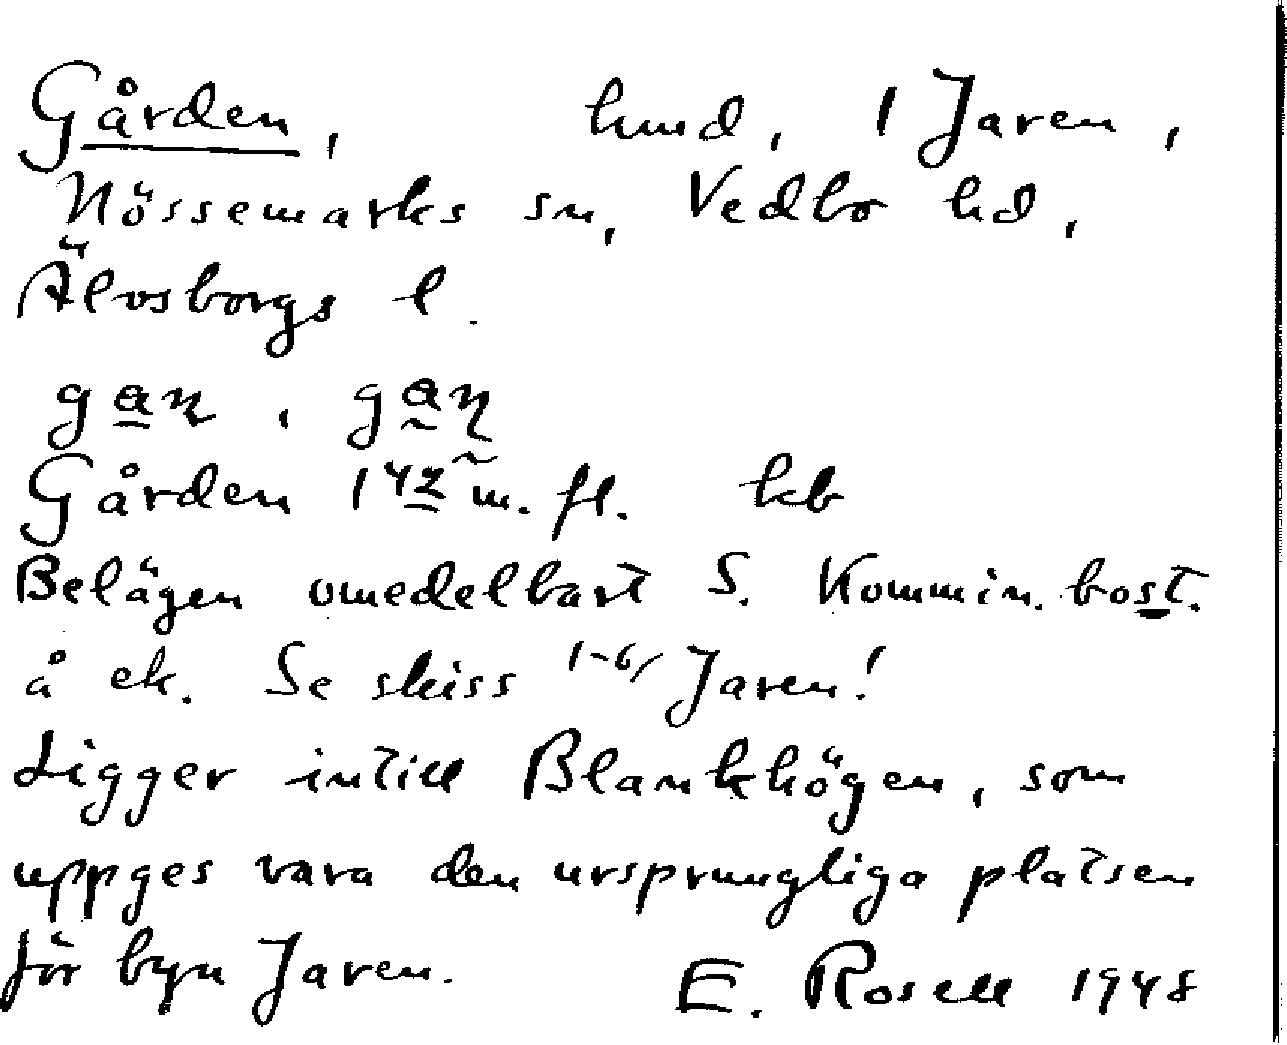 Gården, hmd, 1 Jaren,
Nössemarks sn, Vedbo hd,
Älvsborgs l.
Gården 142 m. fl. kb
Belägen omedelbart S. Kommin. bost.
å ek. Se skiss 1-6/ Jaren!
Ligger intill Blankhögen, som
uppges vara den ursprungliga platsen
för byn Jaren. E. Rosell 1948